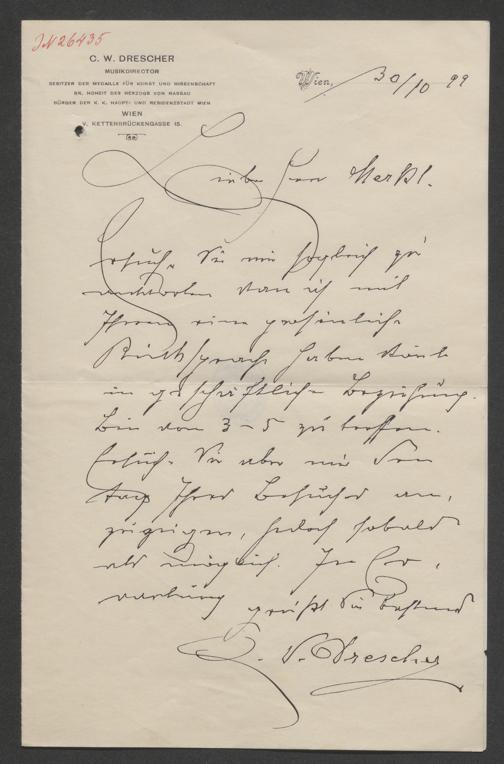 IN 26435
C. W. DRESCHER
MUSIKDIRECTOR
BESITZER DER MEDAILLE FÜR KUNST UND WISSENSCHAFT
SR. HOHEIT DES HERZOGS VON NASSAU
BÜRGER DER K. K. HAUPT- UND RESIDENZSTADT WIEN
WIEN
V. KETTENBRÜCKENGASSE 15.
Wien, 30/10 99
Lieber Herr Merkl.
Ersuche Sie mir sogleich zu
antworten wann ich mit
Ihnen eine persönliche
Rücksprache haben könnte
in geschäftlicher Beziehung.
Bin von 3-5 zu treffen.
Ersuche Sie aber mir den
Tag Ihres Besuches an,
zuzeigen, jedoch sobald
als möglich. In Er,
wartung grüßt Sie bestens
C. W. Drescher